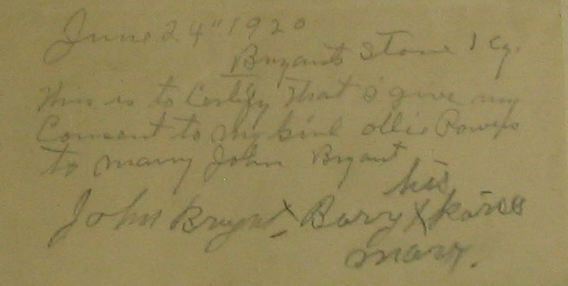 June 24" 1920
Bryants Store Ky.
This is to Certify that I give my
Consent to my girl ollie Powers
to marry John Bryant
his
John Bryant X
mark.